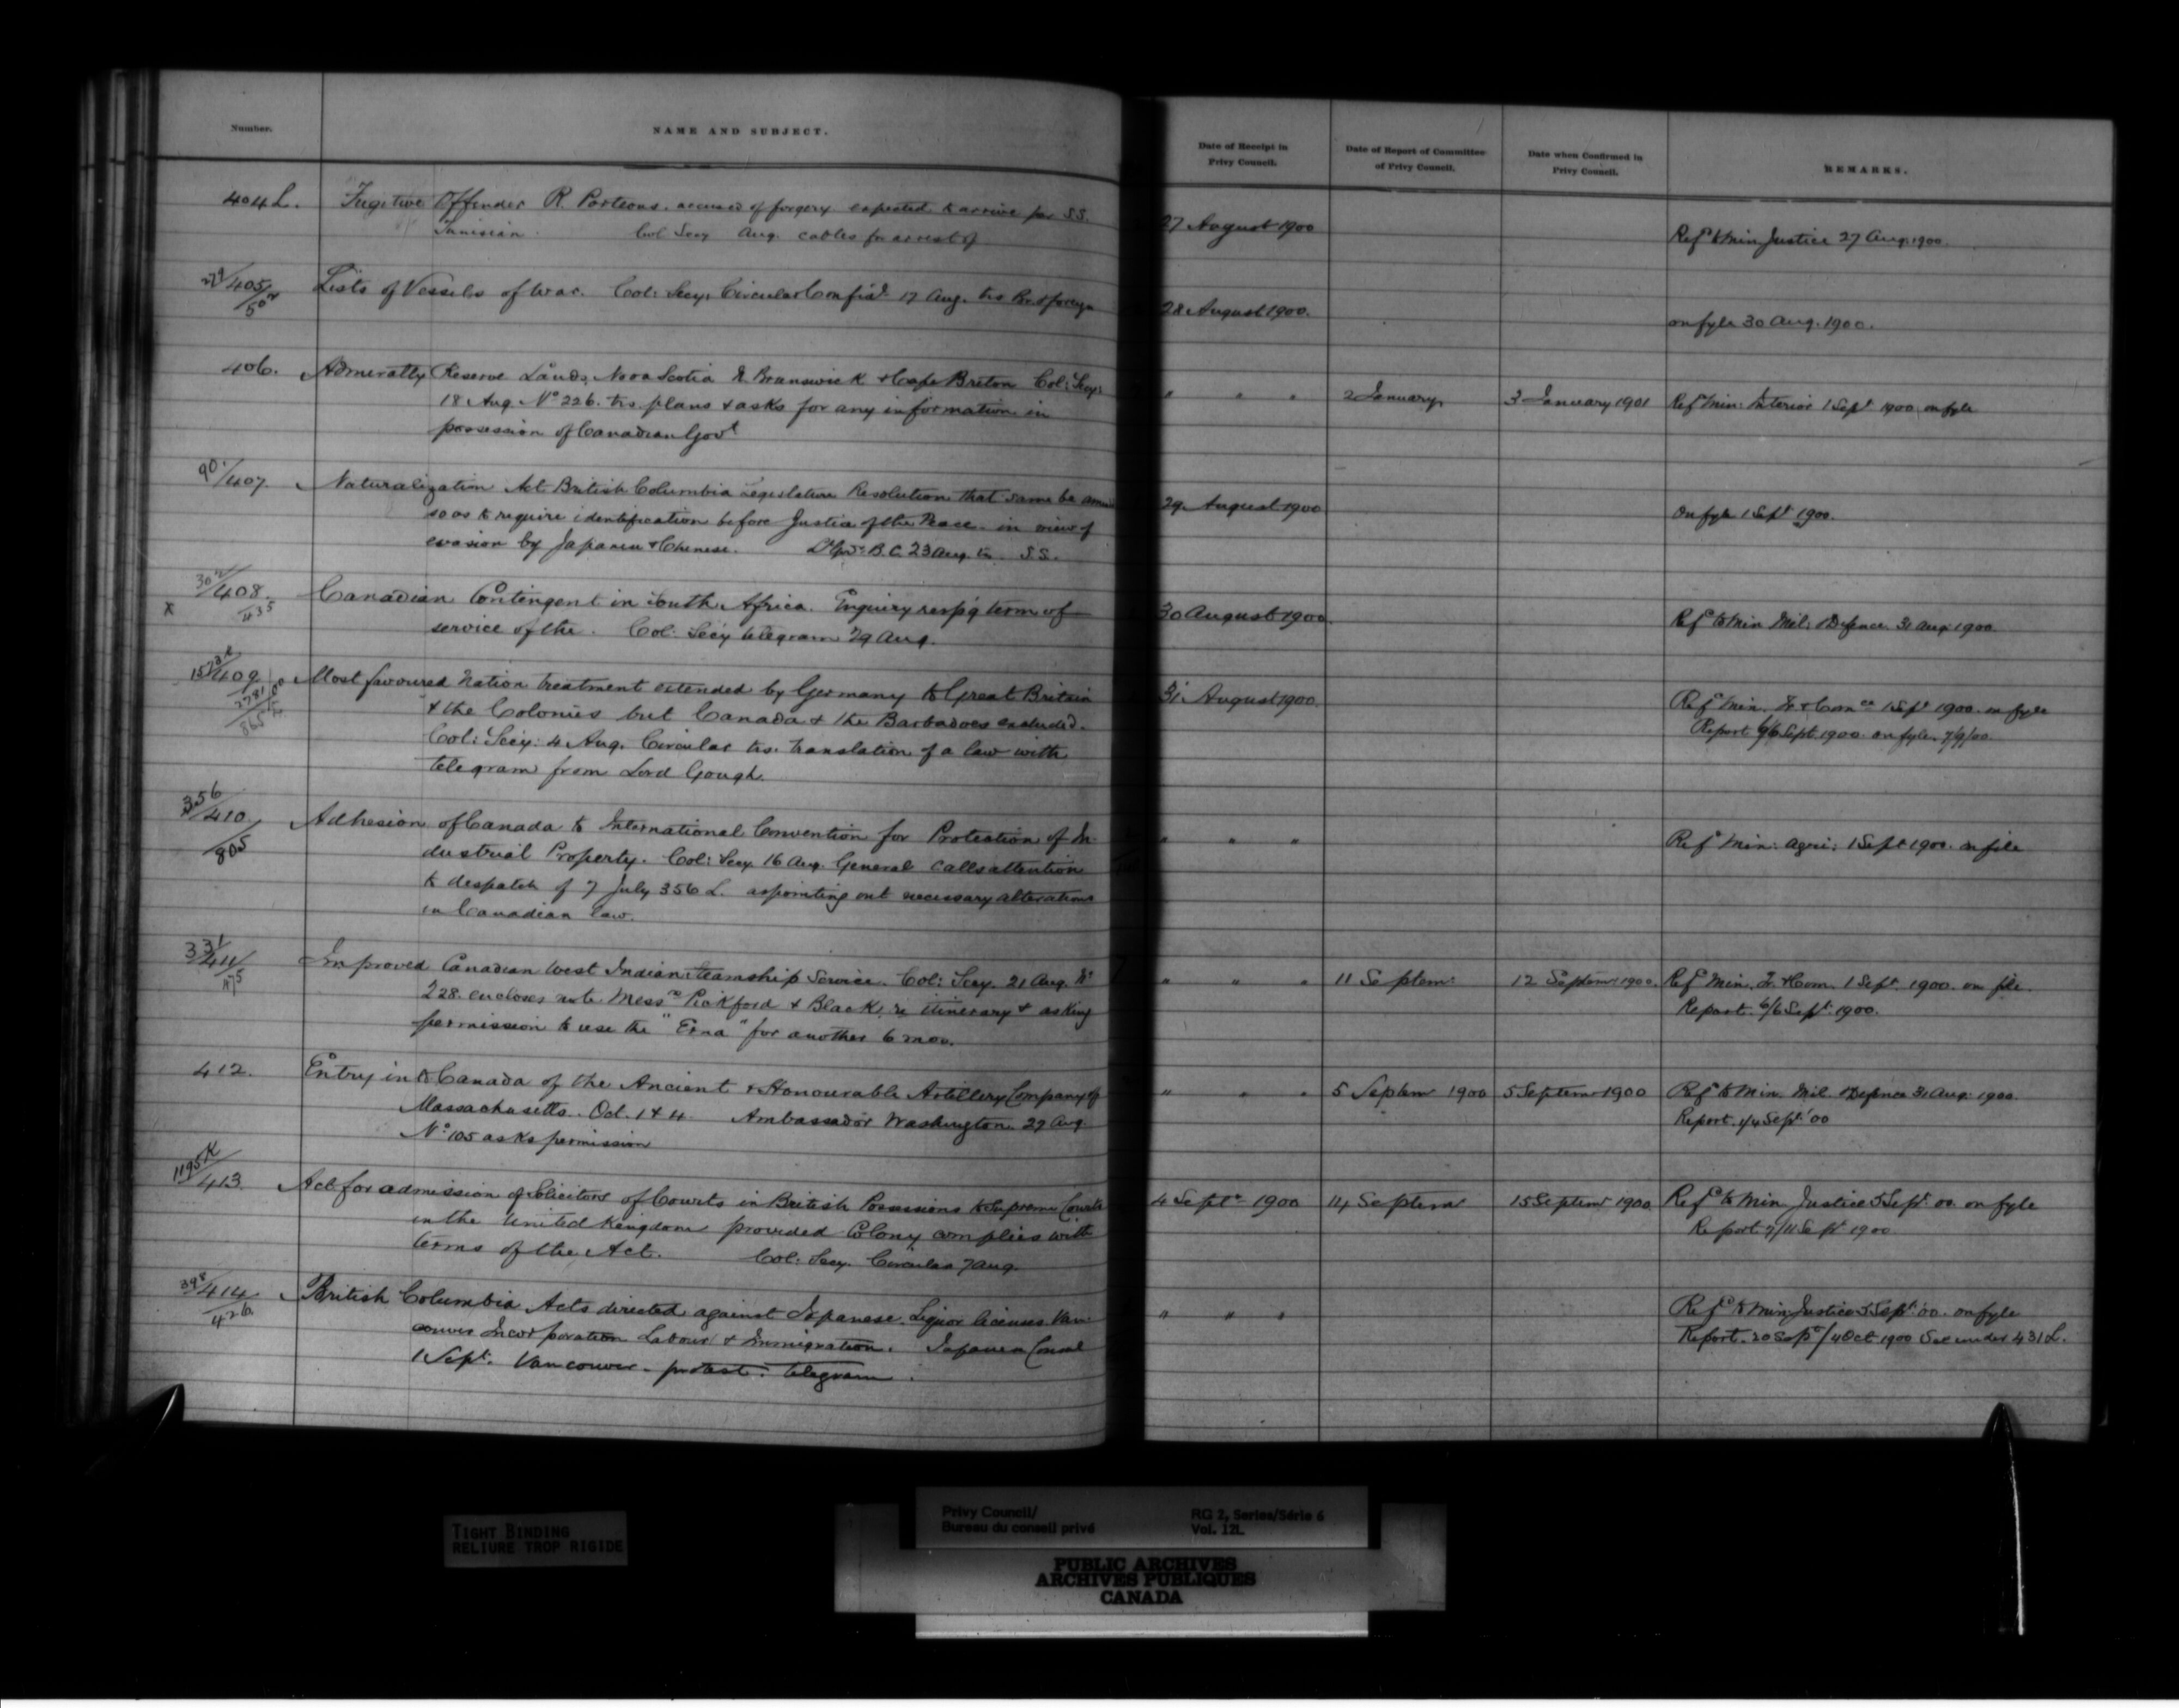 Number.
NAME AND SUBJECT.
Date of Receipt in
Privy Council.
Date of Report of Committee
of Privy Council.
Date when Confirmed in
Privy Council.
REMARKS.
404 L. Fugitive Offender R. Porteous. accused of forgery. expected to arrive per S.S.
Tunisian. Col Secy Aug. cables for arrest of
27 August 1900
Refd to Min Justice 27 Aug. 1900.
405 Lists of Vessels of War. Col: Secy: Circular Confidl 17 Aug. trs Br. & foreign
28 August 1900.
on fyle 30 Aug. 1900.
406. Admiralty Reserve Lands, Nova Scotia N. Brunswick & Cape Breton Col: Secy:
18 Aug. No 226. trs. plans & asks for any information in
possession of Canadian Govt
" " " 2 January 3 January 1901 Refd Min: Interior 1 Sept 1900 on fyle
90/407. Naturalization Act British Columbia Legislature Resolution that same be
so as to require identification before Justice of the Peace. in view of
evasion by Japanese & Chinese. Lt Govr B.C. 23 Aug. trs S.S.
29 August 1900
On fyle 1 Sept 1900.
302/408.
435
x
Canadian Contingent in South Africa. Enquiry respg term of
service of the. Col: Secy telegram 29 Aug.
30 August 1900
Refd to Min Mil: & Defence. 31 Aug 1900.
409 Most favoured Nation treatment extended by Germany to Great Britain
& the Colonies but Canada & the Barbadoes excluded.
Col: Secy: 4 Aug. Circular trs. translation of a law with
telegram from Lord Gough.
31 August 1900.
Refd Min. Tr & Comce 1 Sept 1900. on fyle
Report 6/6 Sept. 1900. on fyle. 7/9/00.
356/410.
805
Adhesion of Canada to International Convention for Protection of In-
dustrial Property. Col: Secy. 16 Aug. General calls attention
to despatch of 7 July 356 L. as pointing out necessary alterations
in Canadian law.
" " "
Refd Min: Agri: 1 Sept 1900. on file
331/411/
Improved Canadian West Indian Steamship Service. Col: Secy. 21 Aug. No
228. encloses note Messrs Pickford & Black, re itinerary & asking
permission to use the "Erna" for another 6 mos.
" " " 11 Septemr 12 Septemr 1900. Refd Min. Tr. & Com. 1 Sept. 1900. on file.
Report. 6/6 Sept: 1900.
412. Entry into Canada of the Ancient & Honourable Artillery Company of
Massachusetts. Oct. 1 & 4. Ambassador Washington. 29 Aug.
No 105 asks permission
" " " 5 Septemr 1900 5 Septemr 1900 Refd to Min. Mil. & Defence 31 Aug: 1900.
Report. 1/4 Sept: '00
1195 K/413.
Act for admission of Solicitors of Courts in British Possessions to Supreme Courts
in the United Kingdom provided Colony complies with
terms of the Act. Col: Secy. Circular 7 Aug.
4 Septr 1900 14 Septemr 15 Septemr 1900. Refd to Min Justice 5 Sept. 00. on fyle
Report 7/11 Sept 1900
398/414/
426.
British Columbia Acts directed against Japanese. Liquor licenses. Van-
couver Incorporation Labour & Immigration. Japanese Consul
1 Sept. Vancouver. protest: telegram.
" " "
Refd to Min Justice 5 Sept '00. on fyle
Report. 20 Sept/4 Oct 1900 See under 431 L.
TIGHT BINDING
RELIURE TROP RIGIDE
Privy Council/
Bureau du conseil privé
RG 2, Series/Série 6
Vol. 12L
PUBLIC ARCHIVES
ARCHIVES PUBLIQUES
CANADA